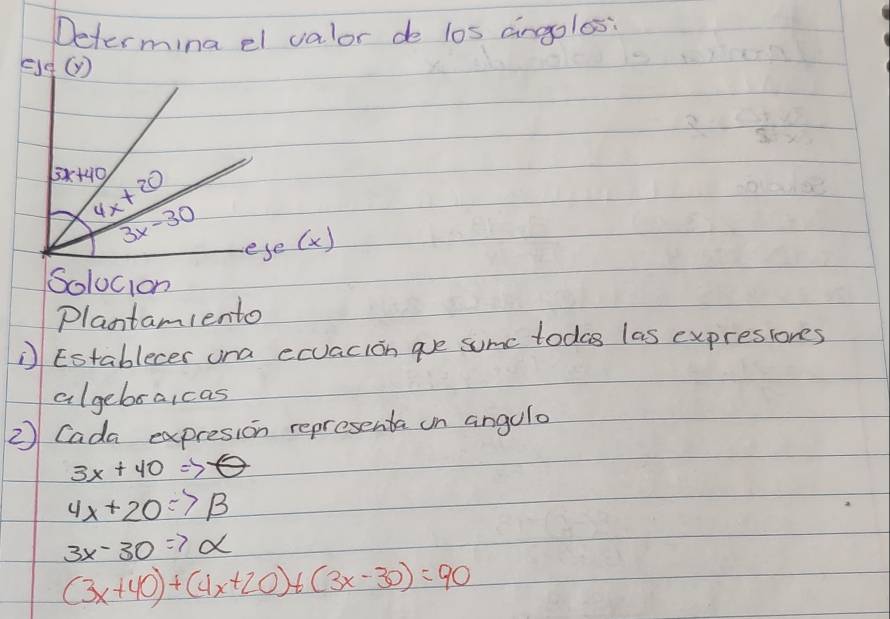 Determina el valor de los ángolos:
eje (y)
3x+40
4x+20
3x-30
eje (x)
Solocion
Plantamiento
1) Establecer una ecuación que sume todas las expresiones
algebraicas
2) Cada expresión representa un angulo
3x + 40 => θ
4x+20 => β
3x-30 => α
(3x+40)+(4x+20)+(3x-30)=90